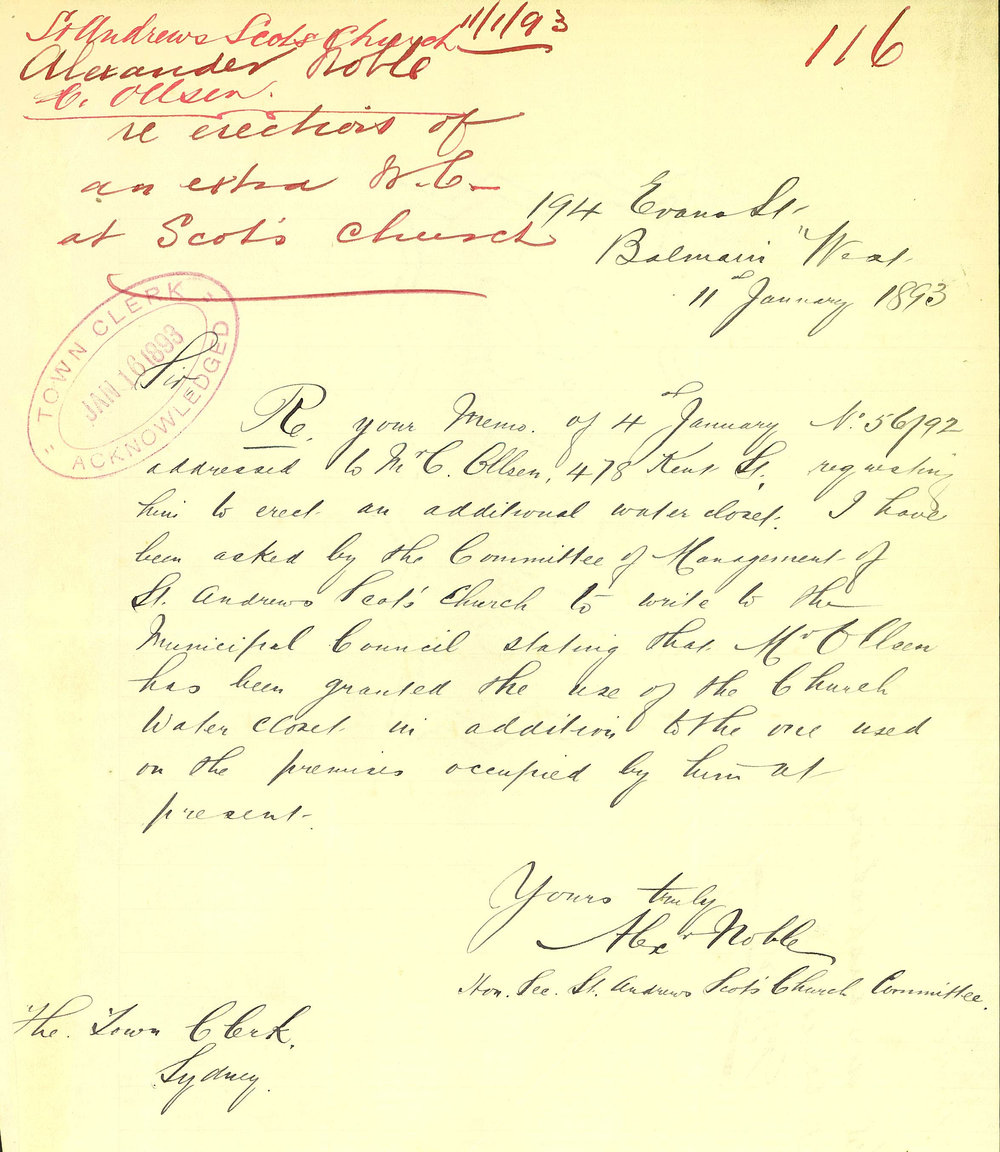 St Andrews Scots Church 11/1/93
116
Alexander Noble
C. Ollsen.
re erection of
an extra W.C.
at Scot's Church
194 Evans St.
Balmain West
11th January 1893
TOWN CLERK
JAN 16 1893
ACKNOWLEDGED
Sir
Re. your Memo. of 4th January No. 56/92
addressed to Mr C. Ollsen, 478 Kent St. requesting
him to erect an additional water closet. I have
been asked by the Committee of Management of
St. Andrews Scot's Church to write to the
Municipal Council stating that Mr C Ollsen
has been granted the use of the Church
Water closet in addition to the one used
on the premises occupied by him at
present.
Yours truly
Alexr Noble
Hon. Sec. St. Andrews Scot's Church Committee.
The Town Clerk.
Sydney.